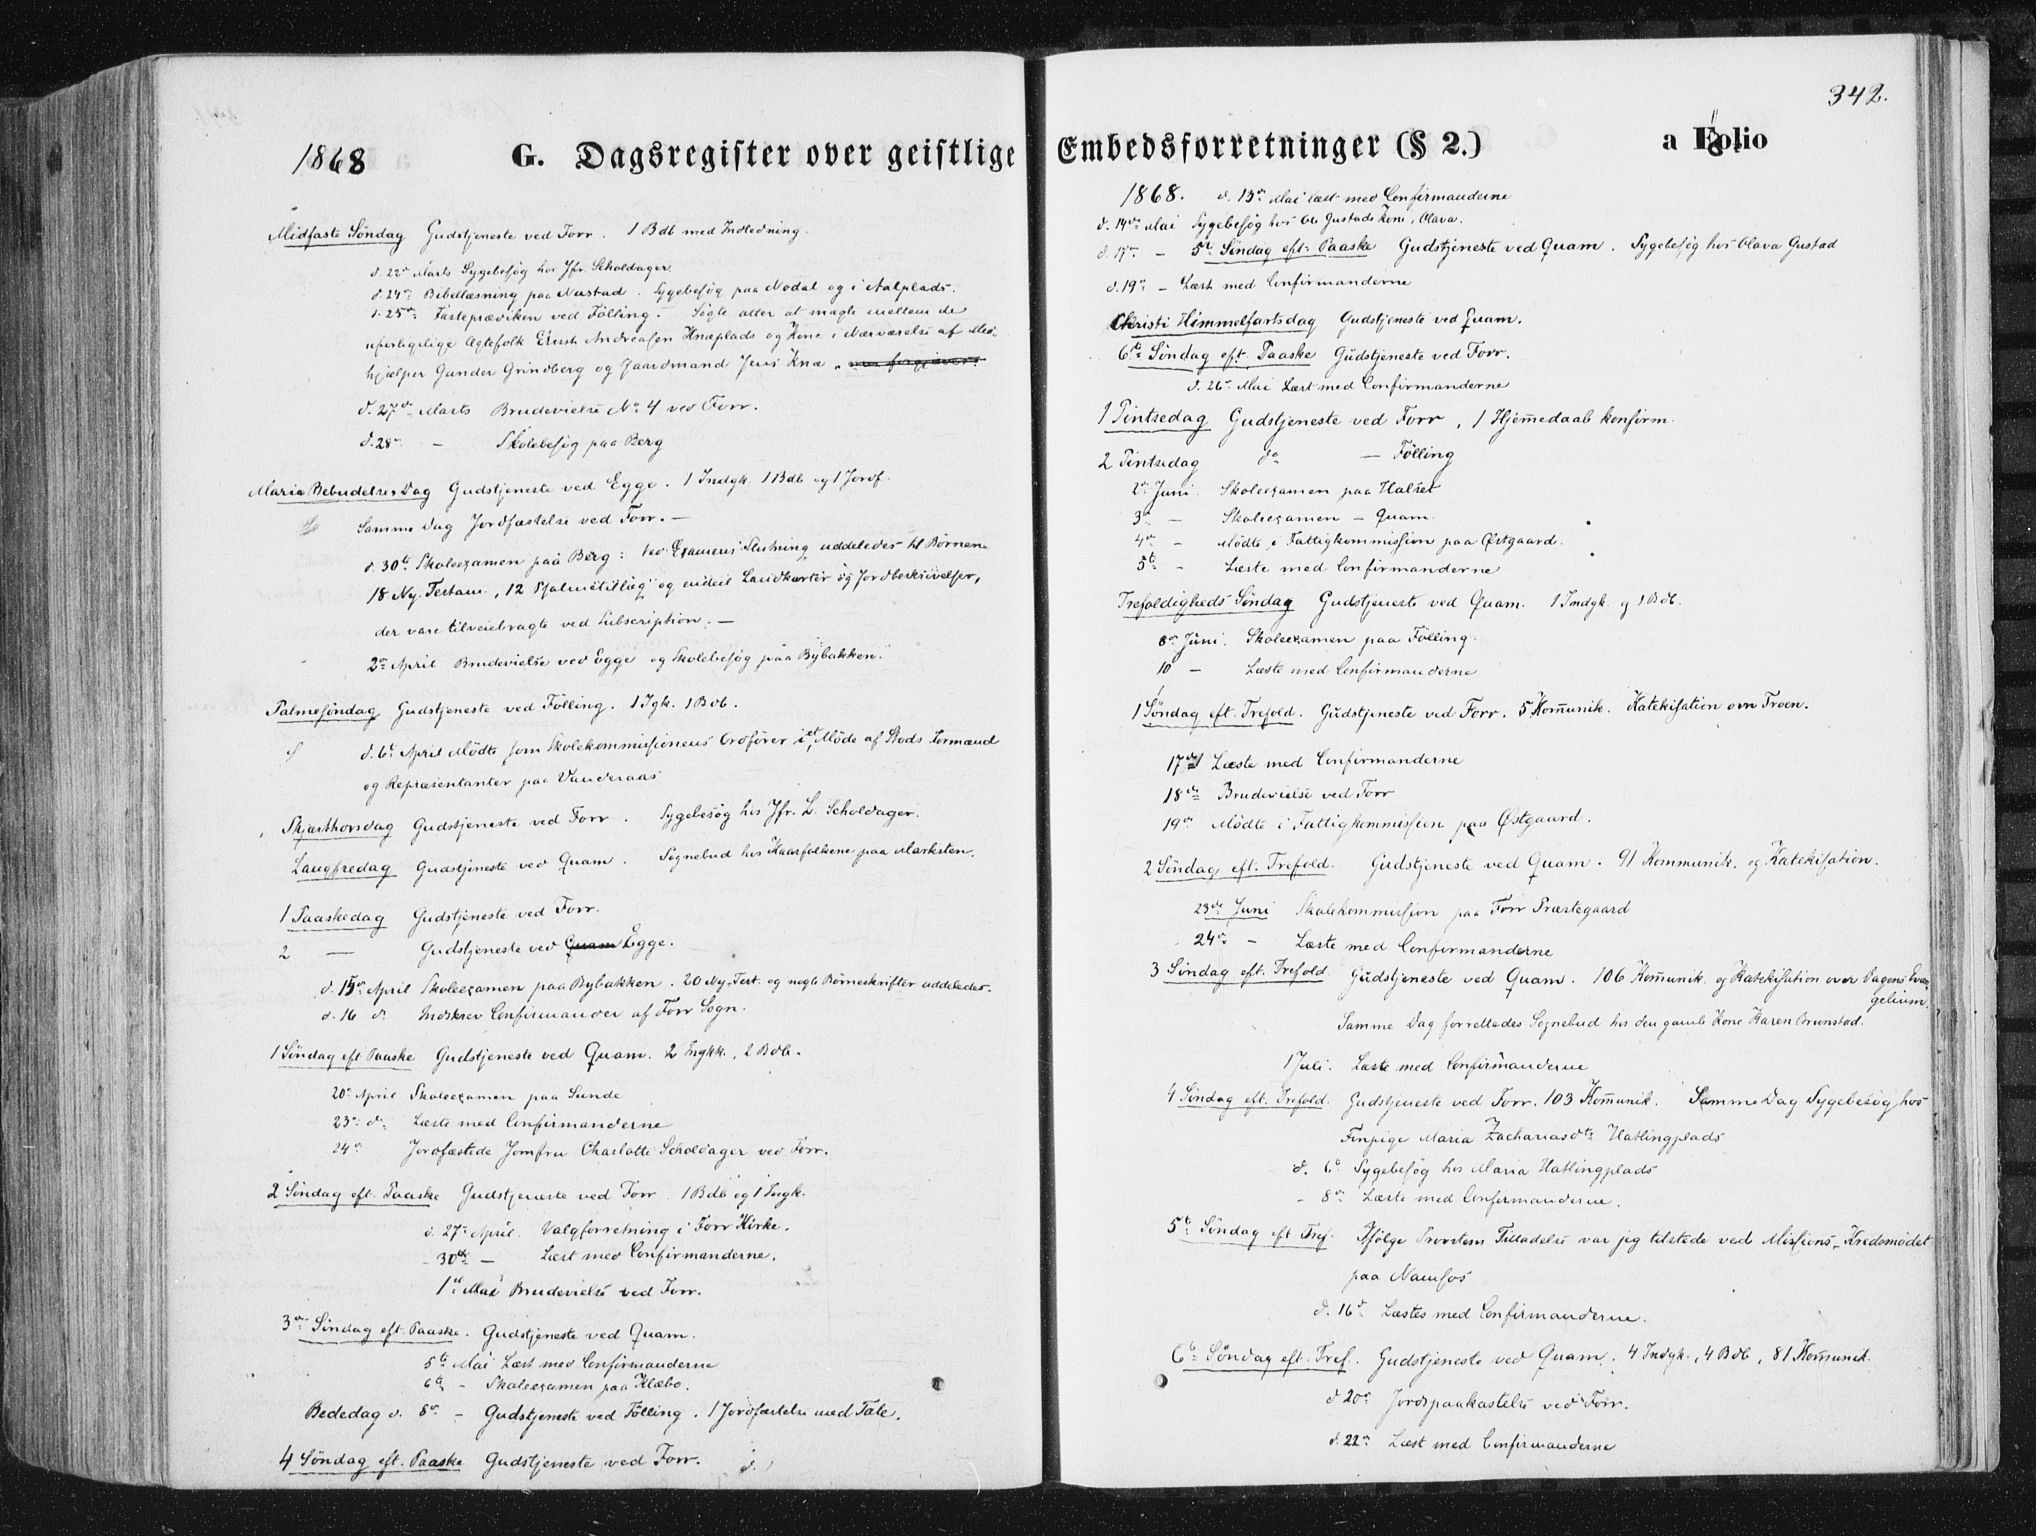 1868 G. Dagsregister over geistlige
Midfaste Søndag Gudstjeneste ved Forr. 1 Bdb med Indledning.
d. 22de Marts Sygebesøg hos Jfr. Scholdager
d. 24de Bibellæsning paa Nustad. Sygebesøg paa Nodal og i Aalplads.
d. 25de Fasteprædiken ved Fölling. – Søgte atter at mægle mellem de
uforligelige Ægtefolk Ernst Andreasen Knæplads og Kone i Nærværelse af Med-
hjælper Gunder Grindberg og Gaardmand Jens Knæ, men forgjæves.
d. 27de Marts Brudevielse No. 4 ved Forr.
d. 28de – Skolebesøg paa Berg
Maria Bebudelses Dag Gudstjeneste ved Egge. 1 Indgk. 1 Bdb og 1 Jordf.
Samme Dag Jordfæstelse ved Forr. –
d. 30te Skoleexamen paa Berg: ved Examens Slutning uddeledes til Børnene
18 Ny. Testam., 12 Psalmetillæg og endeel Landkarter og Jordbeskrivelser,
der vare tilveiebragte ved Subscription. –
2de April Brudevielse ved Egge og Skolebesøg paa Bybakken.
Palmesöndag Gudstjeneste ved Fölling. 1 Igk. 1 Bdb.
d. 6te April Mödte som Skolekommissionens Ordförer i et Möde af Stods Formænd
og Repræsentanter paa Vanderaas
Skjærthorsdag Gudstjeneste ved Forr. Sygebesøg hos Jfr. L. Scholdager.
Langfredag Gudstjeneste ved Quam. Sognebud hos Kaarfolkene paa Marksten.
1 Paaskedag Gudstjeneste ved Forr.
2 — Gudstjeneste ved Quam Egge.
d. 15de April Skoleexamen paa Bybakken. 20 Ny. Test. og nogle Börneskrifter uddeledes.
d. 16 do Indskrev Confirmander af Forr Sogn.
1 Søndag eft Paaske Gudstjeneste ved Quam. 2 Ingkk., 2 Bdb.
20de April Skoleexamen paa Sunde
23de do Læste med Confirmanderne
24de Jordfæstede Jomfru Charlotte Scholdager ved Forr.
2 Söndag eft. Paaske Gudstjeneste ved Forr. 1 Bdb og 1 Ingk.
d. 27de April. Valgforretning i Forr Kirke.
30te – Læst med Confirmanderne.
1ste Mai Brudevielse ved Forr.
3die Söndag eft. Paaske. Gudstjeneste ved Quam.
5te Mai Læst med Confirmanderne
6te – Skoleexamen paa Klæbo.
Bededag d. 8de – Gudstjeneste ved Fölling. 1 Jordfæstelse med Tale.
4 Söndag eft. Paaske Gudstjeneste ved Forr. d.
342.
Embedsforretninger (§ 2.) a Folio
1868. d. 13de Mai læst med Confirmanderne
d. 14de Mai Sygebesøg hos Ole Gustads Kone, Olava.
d. 17de – 5te Søndag eft. Paaske Gudstjeneste ved Quam. Sygebesøg hos Olava Gustad
d. 19de – Læst med Confirmanderne
Christi Himmelfartsdag Gudstjeneste ved Quam.
6te Søndag eft. Paaske Gudstjeneste ved Forr.
d. 26de Mai Læst med Confirmanderne
1 Pintsedag Gudstjeneste ved Forr, 1 Hjemmedaab konfirm.
2 Pintsedag do — Fölling
2den Juni. Skoleexamen paa Halset
3de – Skoleexamen – Quam.
4de – Mødte i Fattigkommissjon paa Østgaard.
5te – Læste med Confirmanderne
Trefoldigheds Søndag Gudstjeneste ved Quam. 1 Indgk. og 1 Bdb.
8de Juni. Skoleexamen paa Fölling.
10 – Læste med Confirmanderne
1 Søndag eft. Trefold. Gudstjeneste ved Forr. 5 Komunik. Katekisation over Troen.
17de Læste med Confirmanderne
18de Brudevielse ved Forr
19de Mödte i Fattigkommissjon paa Østgaard.
2 Søndag eft. Trefold. Gudstjeneste ved Quam. 91 Kommunik. og Katekisation.
23de Juni Skolekommissjon paa Forr Præstegaard
24de – Læste med Confirmanderne
3 Søndag eft. Trefold Gudstjeneste ved Quam. 106 Komunik. og Katekisation over Dagens Evan-
gelium.
Samme Dag forrettedes Sognebud hos den gamle Kone Karen Brunstad.
1 Juli. Læste med Confirmanderne
4 Søndag eft. Trefold. Gudstjeneste ved Forr. 103 Komunik. Samme Dag Sygebesøg hos
Finpige Maria Zachariasdtr Hatlingplads
d. 6te Sygebesøg hos Maria Hatlingplads
– 8de Læste med Confirmanderne.
5te Søndag eft Tref. Ifølge Provstens Tilladelse var jeg tilstede ved Missions-Kredsmødet
paa Namsos
d. 16de Læstes med Confirmanderne.
6te Søndag eft. Tref. Gudstjeneste ved Quam. 4 Indgk., 4 Bdb, 81 Komunik.
d. 20de Jordspaakastelse ved Forr.
d. 22de Læst med Confirmanderne